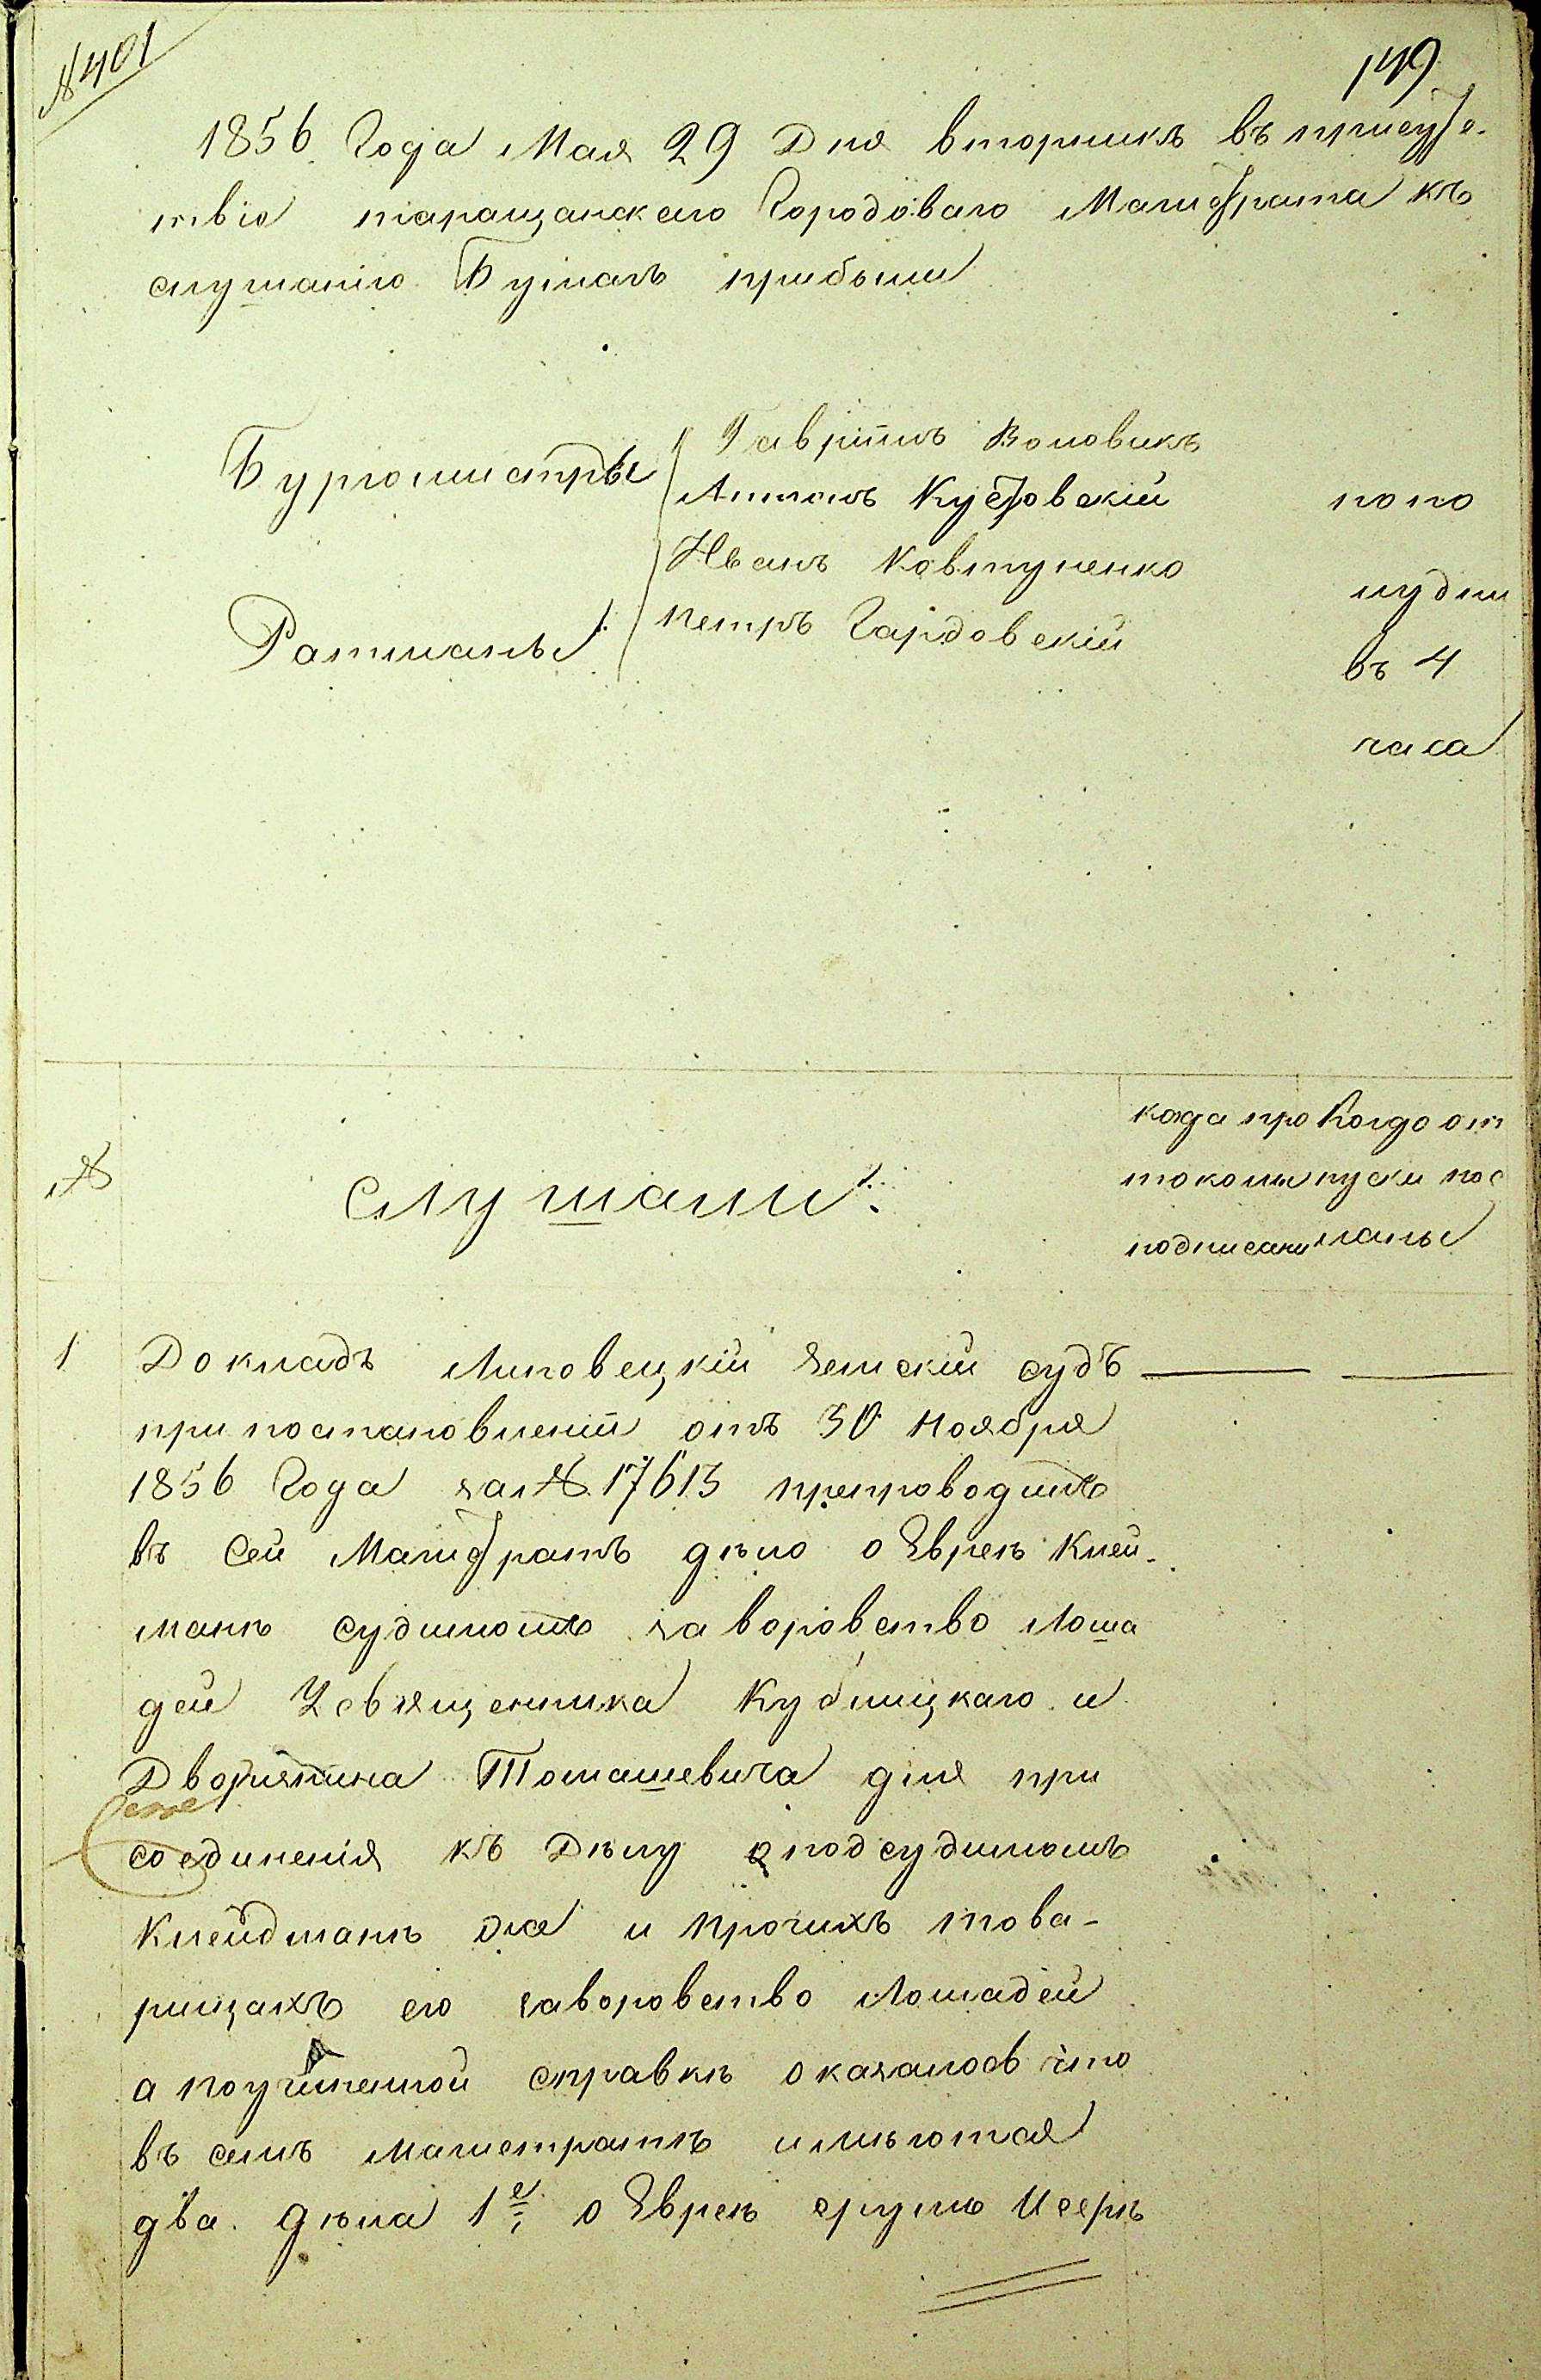 № 401
149
1856 Года Мая 29 Дня вторникъ въ присутс-
твіе таращанскаго Городоваго Магистрата къ
слушанію Бумагъ прибыли
Бургомистры
Гавріилъ Воловикъ
Антонъ Кустовскій
Ратманы:
Иванъ Ковтуненко
Петръ Гардовскій
попо
лудни
въ 4
часа
№
слушали:
когда про
токолы
подписаны
Когдо от
пуски пос
ланы
1 Докладъ Липовецкій Земскій судъ
при постановленіи отъ 30 Ноября
1856 Года за № 17613 препроводилъ
въ Сей Магистратъ дѣло о Евреѣ Клей-
манѣ судимомъ за воровство Лоша
дей У священника Кублицкаго и
Дворянина Томашевича для при
соединенія къ Дѣлу о подсудимомъ
Клейдманѣ же и прочихъ това-
рищахъ его заворовство Лошадей
а поучиненной справкѣ оказалось что
въ семъ магистратѣ имѣются
два дѣла 1е, о Евреѣ Срулѣ Исерѣ